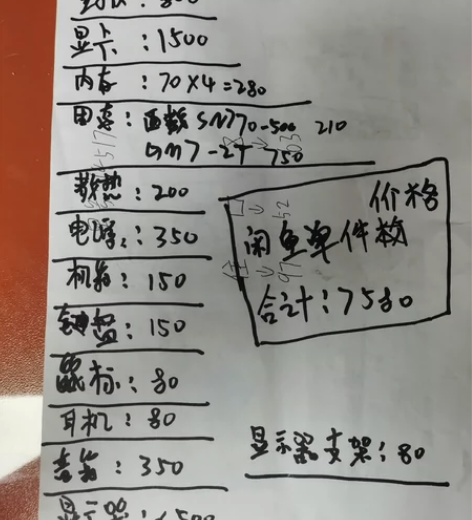 显卡：1500
内存：70×4=280
固态：西数SN770-500 210
750
散热：200
电源：350
机箱：150
键盘：150
鼠标：80
耳机：80
音箱：350
价格
闲鱼单件数
合计：7580
显示器支架：80